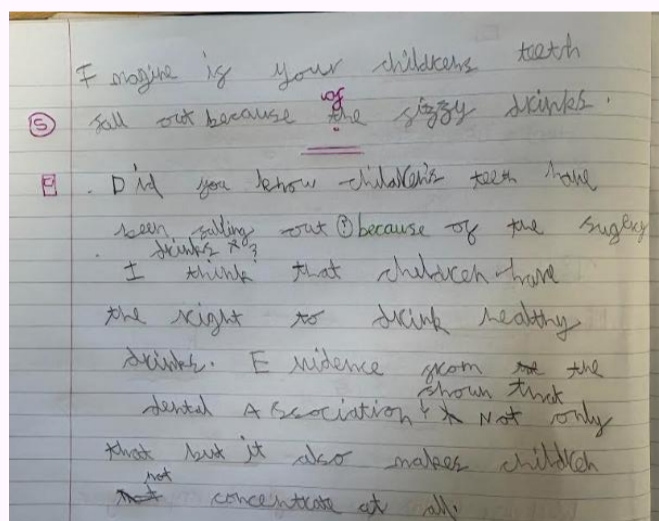 Imagine is your childrens teeth
of
(S) fall out because the fizzy drinks.
. Did you know children's teeth have
been falling out ? because of the sugery
. drinks * ?
I think that children have
the right to drink healthy
drinks. Evidence from the
shown that
dental Association * Not only
that but it also makes children
not
concentrate at all.